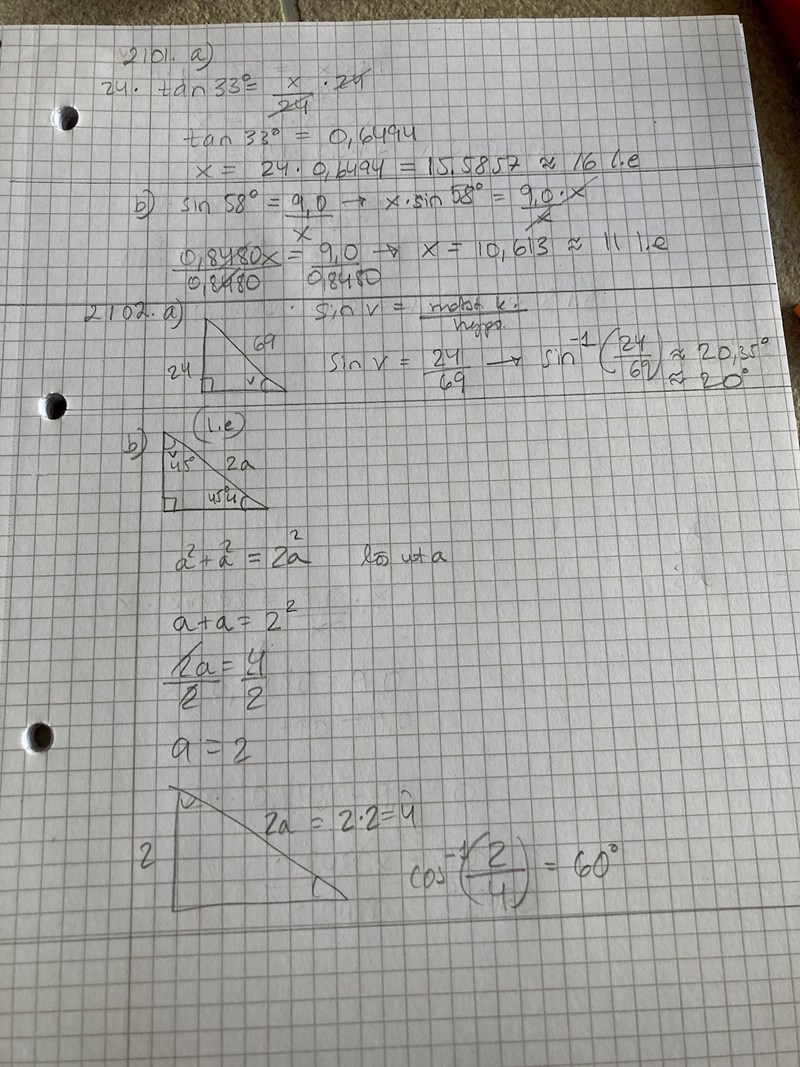 2101. a)
24 · tan 33° = x/24 · 24
tan 33° = 0,6494
x = 24 · 0,6494 = 15.5857 ≈ 16 l.e
b) sin 58° = 9,0/x → x · sin 58° = 9,0 · x/x
0,8480x/0,8480 = 9,0/0,8480 → x = 10,613 ≈ 11 l.e
2102. a) sin v = motst. k./hypo.
69
24
v
sin v = 24/69 → sin⁻¹(24/69) ≈ 20,35°
≈ 20°
(l.e)
b)
v
45° 2a
45°
a² + a² = 2a² lös ut a
a + a = 2²
2a/2 = 4/2
a = 2
v
2a = 2·2 = 4
2
cos⁻¹(2/4) = 60°